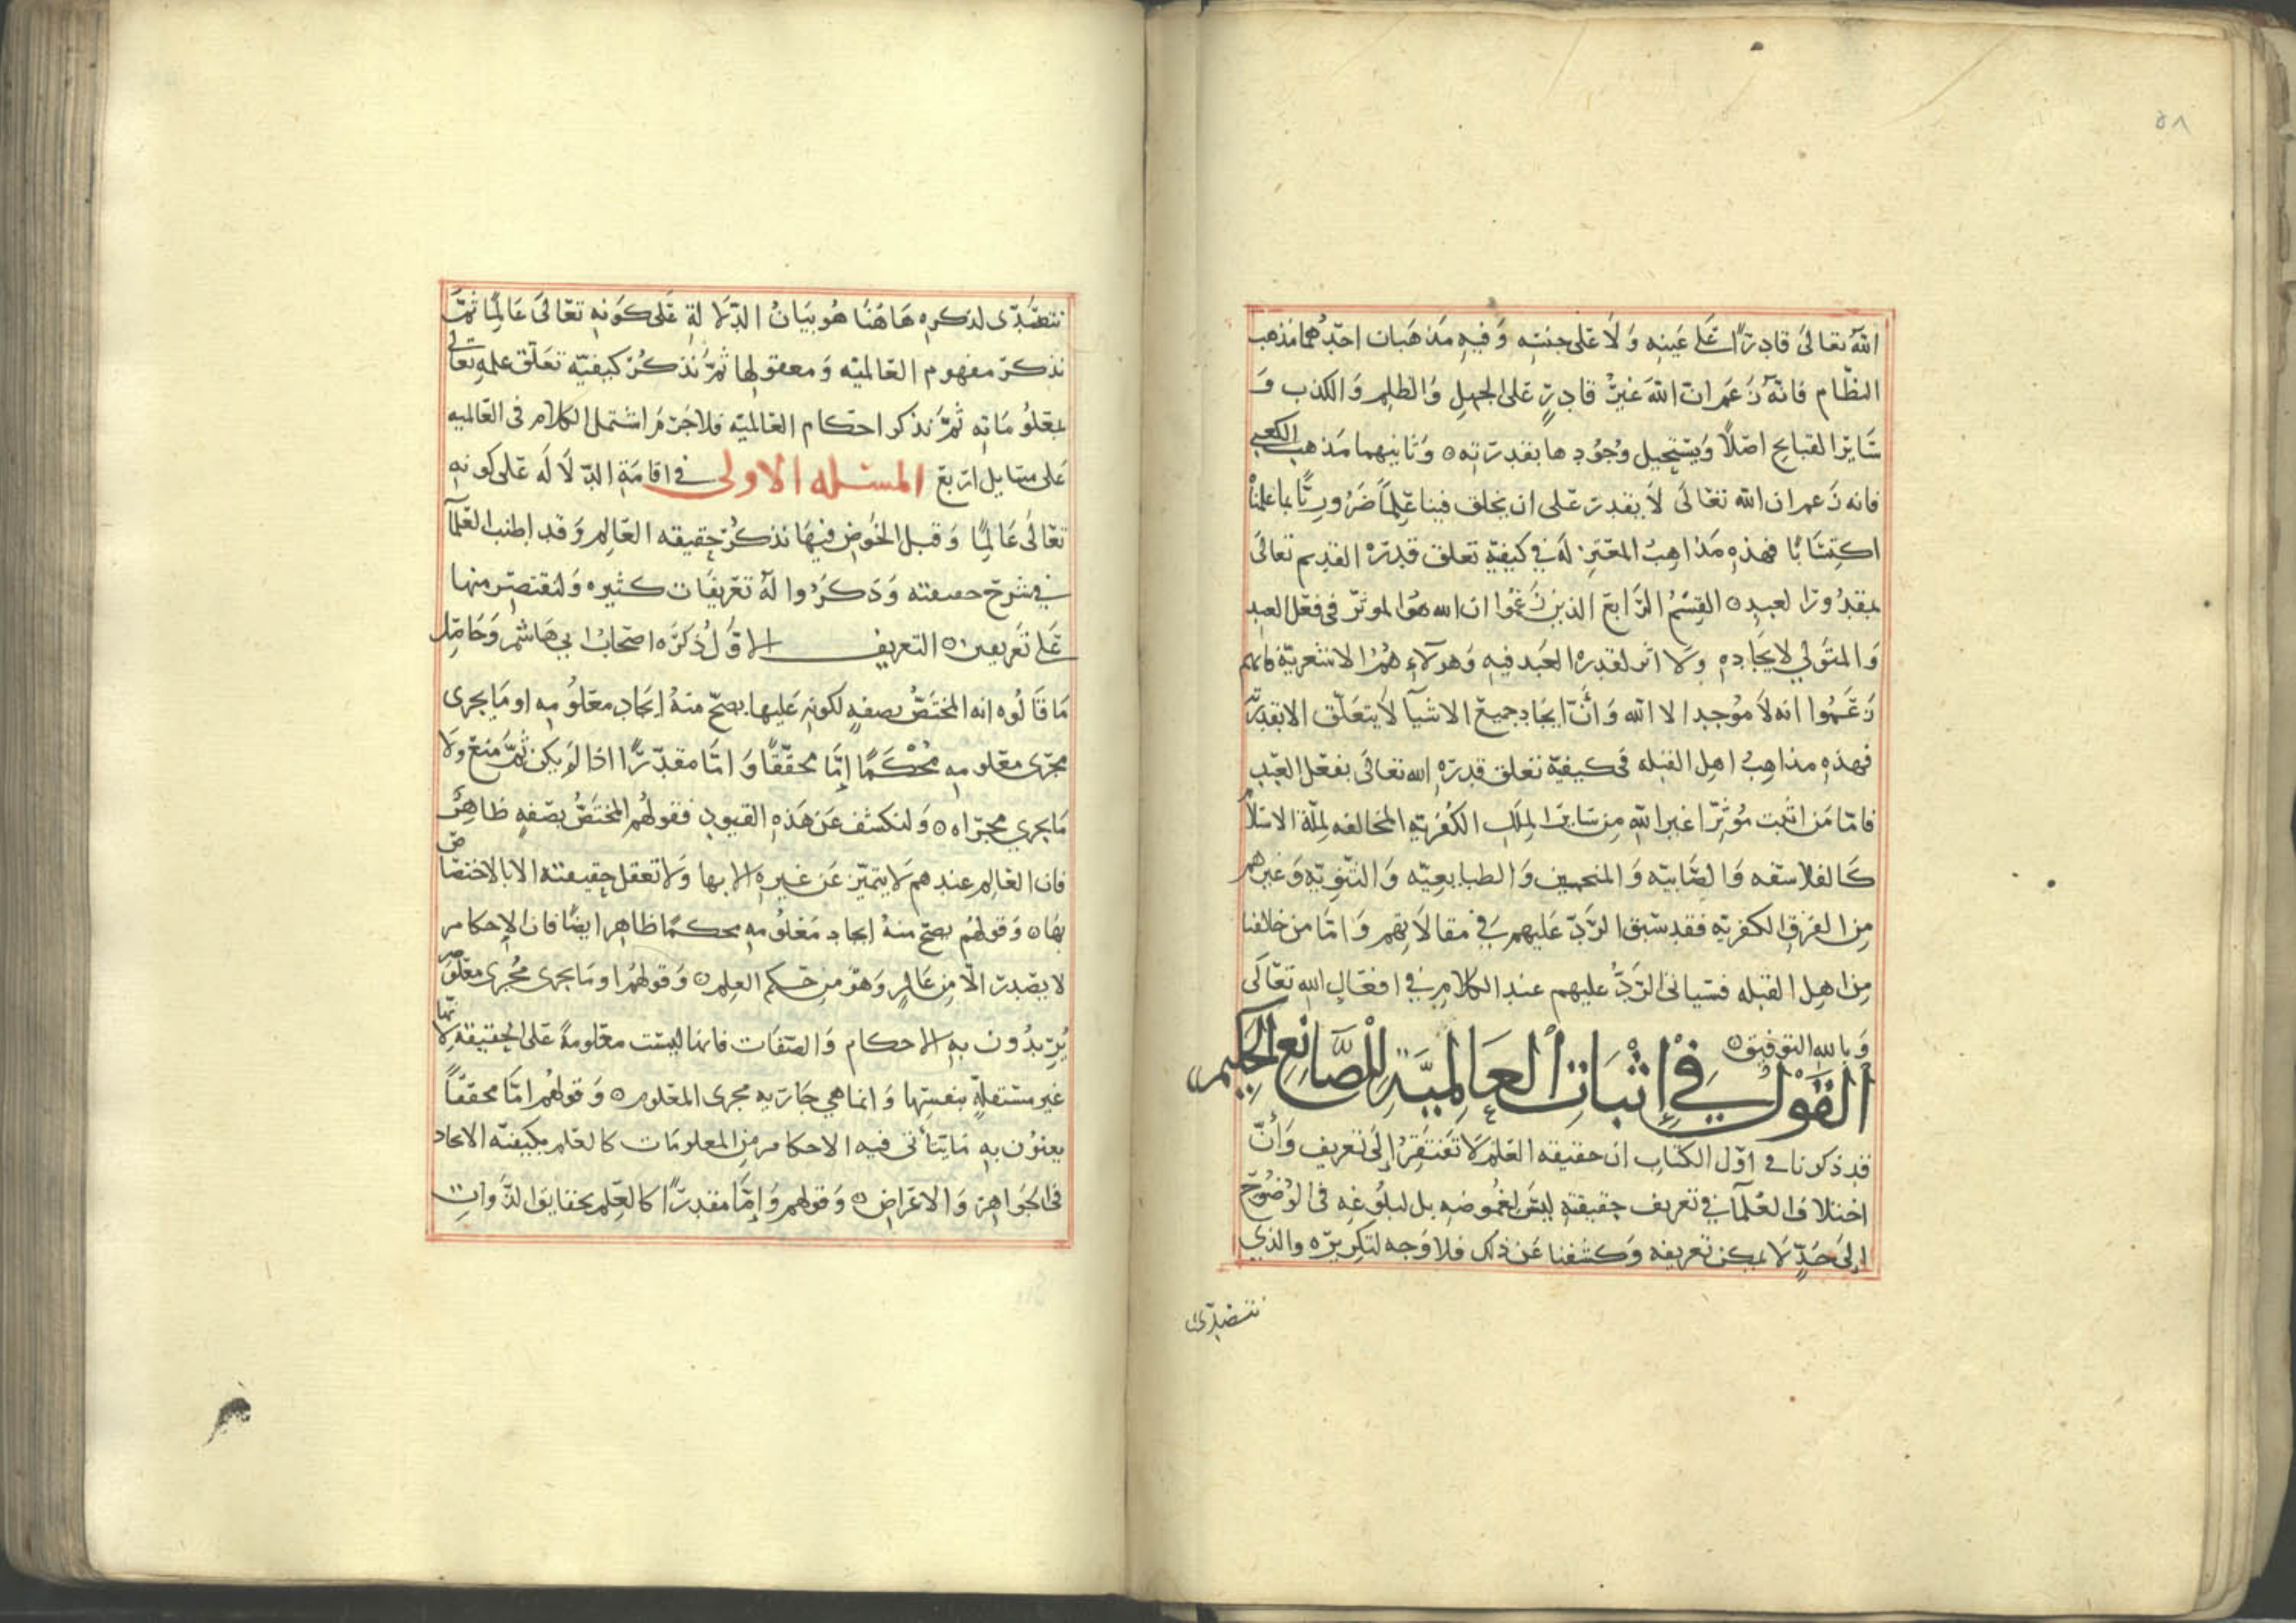 ٥٨
الله تعالى قادرًا على عينه ولا على جنسه وفيه مذهبان احدهما مذهب
النظام فانه زعم ان الله غير قادرٍ على الجهل والظلم والكذب و
سَاير القبايح اصلًا ويستحيل وجودها بقدرته ٥ وثانيهما مذهب الكعبي
فانه زعم ان الله تعالى لا يقدر على ان يخلق فينا علمًا ضروريًّا بما علمناه
اكتسَابًا فهذه مذاهب المعتزله في كيفية تعلق قدرة القديم تعالى
بمقدورا لعبد ٥ القسم الرابع الذين زعموا ان الله هو الموثر في فعل العبد
والمتولي لايجاده ولا اثر لقدرة العبد فيه وهولاء هم الاشعرية فانهم
زعموا انه لا موجد الا الله وانّ ايجاد جميع الاشيآ لا يتعلق الا بقدرته
فهذه مذاهب اهل القبله في كيفية تعلق قدرة الله تعالى بفعل العبد
فامّا من اثبت مؤثرًا غير الله من ساير الملل الكفرية المخالفه لملة الاسلام
كالفلاسفه والصابيه والمنجمين والطبايعيّه والثنويّه وغيرهم
من الفرق الكفريه فقد سبق الرد عليهم في مقالاتهم وامّا من خالفنا
من اهل القبله فسياتى الرد عليهم عند الكلام في افعال الله تعالى
وبالله التوفيق ٥
القول في إثبات العالمية للصانع الحكيم
قد ذكرنا في اوّل الكتاب ان حقيقه العلم لا تفتقر إلى تعريف وأنّ
اختلاف العلمآ في تعريف حقيقته ليس لغموضه بل لبلوغه في الوضوح
إلى حدٍّ لا يمكن تعريفه وكشفنا عن ذلك فلا وجه لتكريره والذي
نتصدى
نتصدى لذكره هاهنا هو بيان الدلالة على كونه تعالى عالمًا ثمّ
نذكر مفهوم العالميه ومعقولها ثمّ نذكر كيفيّه تعلق علمه تعالى
بمعلوماته ثمّ نذكر احكام العالميّه فلا جرم اشتمل الكلام في العالميه
على مسَايل اربع المسئله الاولى في اقامة الدلاله على كونه
تعالى عالمًا وقبل الخوض فيها نذكر حقيقه العالم وقد اطنب العلمآ
في شرح حقيقته وذكروا له تعريفات كثيره ولنقتصر منها
على تعريفين ٥ التعريف الاول ذكره اصحاب ابي هاشم وحاصل
ما قالوه انه المختص بصفةٍ لكونه عليها يصحّ منه ايجاد معلومه او ما يجرى
مجرى معلومه مُحْكمًا إمّا محققًا وامّا مقدّرًا اذا لم يكن ثمّ منع ولا
ما يجري مجراه ٥ ولنكشف عن هذه القيود فقولهم المختصّ بصفةٍ ظاهر
فان العالم عندهم لا يتميّز عن غيره الا بها ولا تعقل حقيقته الا بالاختصاص
بها ٥ وقولهم يصحّ منه ايجاد معلومه محكمًا ظاهر ايضًا فان الاحكام
لا يصدر الّا من عالمٍ وهو من حكم العلم ٥ وقولهم او ما يجرى مجرى معلومه
يُريدون به الاحكام والصفات فانها ليست معلومةً على الحقيقة لانها
غير مستقلةٍ بنفسها وانما هي جاريه مجرى المعلوم ٥ وقولهم امّا محققًا
يعنون به ما يتأتى فيه الاحكام من المعلومات كالعلم بكيفيّة الايجاد
في الجواهر والاعراض ٥ وقولهم وإمّا مقدرًا كالعلم بحقايق الذوات